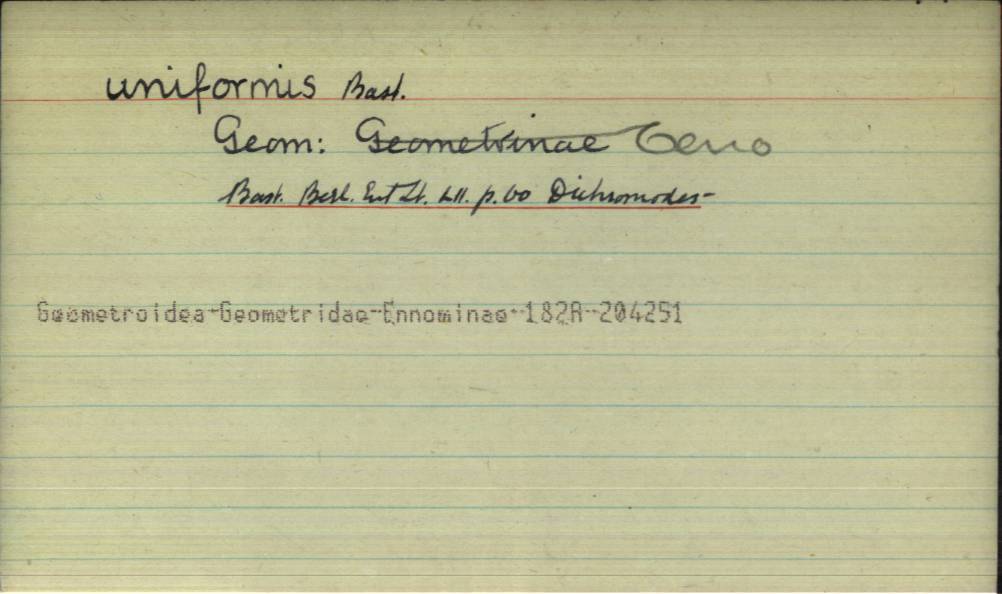 uniformis Bast.
Geom: Geometrinae Oeno
Bast. Berl. Ent Zt. LII. p. 60 Dichromodes
Geometroidea-Geometridae-Ennominae-182A-204251